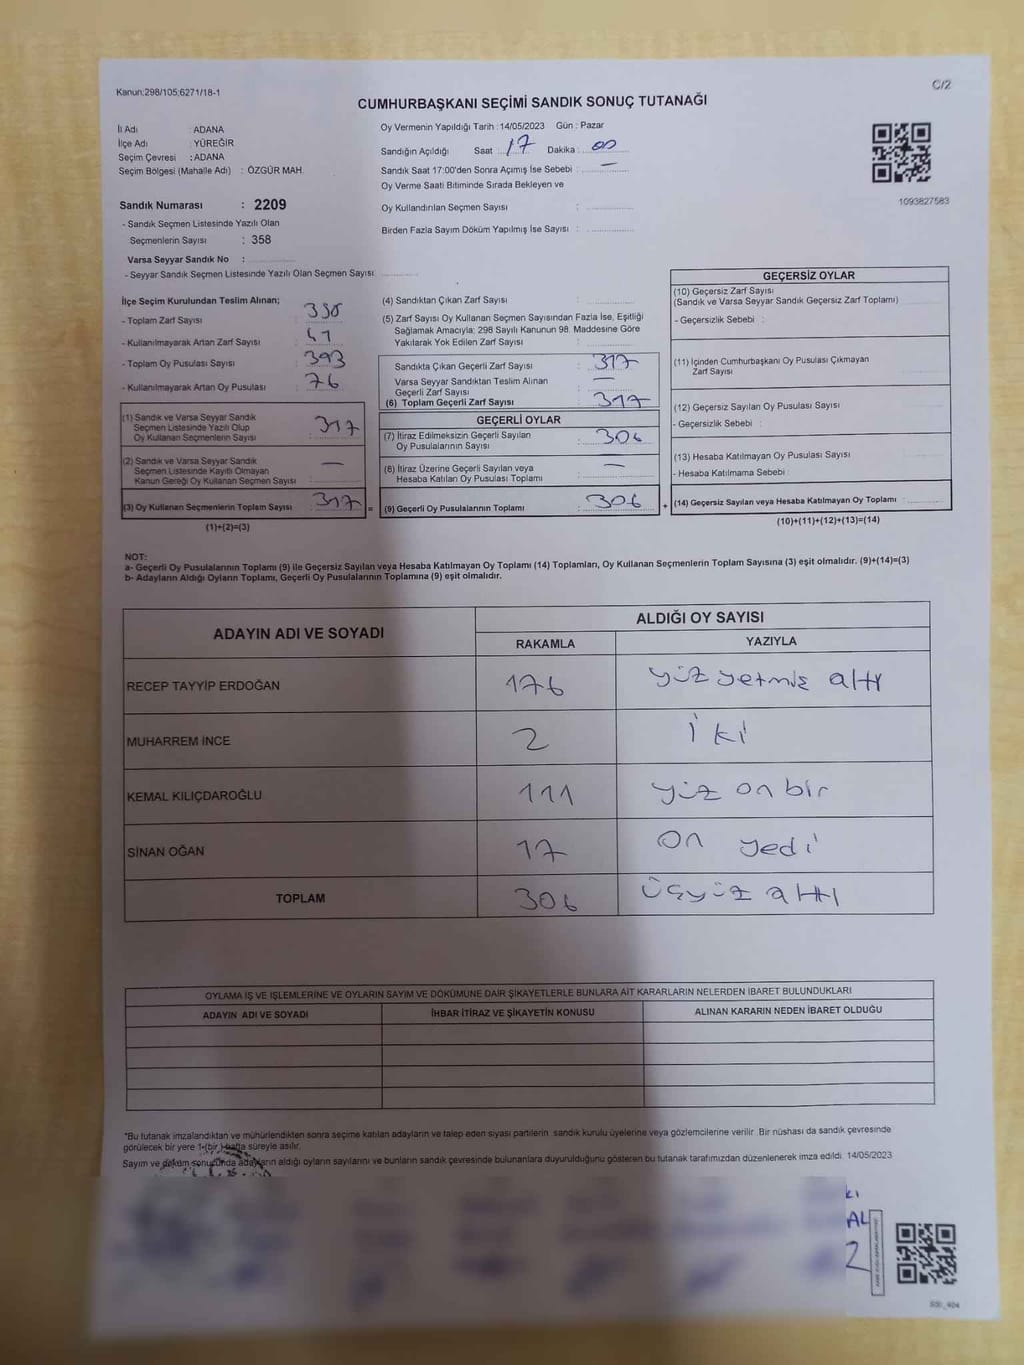 Kanun:298/105;6271/18-1
C/2
CUMHURBAŞKANI SEÇİMİ SANDIK SONUÇ TUTANAĞI
İl Adı : ADANA
İlçe Adı : YÜREĞİR
Seçim Çevresi : ADANA
Seçim Bölgesi (Mahalle Adı) : ÖZGÜR MAH.
Oy Vermenin Yapıldığı Tarih : 14/05/2023 Gün : Pazar
Sandığın Açıldığı Saat : 17 Dakika : 00
Sandık Saat 17:00'den Sonra Açımış İse Sebebi : —
Oy Verme Saati Bitiminde Sırada Bekleyen ve
Oy Kullandırılan Seçmen Sayısı :
Birden Fazla Sayım Döküm Yapılmış İse Sayısı :
1093827583
Sandık Numarası : 2209
- Sandık Seçmen Listesinde Yazılı Olan
Seçmenlerin Sayısı : 358
Varsa Seyyar Sandık No :
- Seyyar Sandık Seçmen Listesinde Yazılı Olan Seçmen Sayısı:
İlçe Seçim Kurulundan Teslim Alınan;
- Toplam Zarf Sayısı :
- Kullanılmayarak Artan Zarf Sayısı :
- Toplam Oy Pusulası Sayısı : 393
- Kullanılmayarak Artan Oy Pusulası : 76
(1) Sandık ve Varsa Seyyar Sandık
Seçmen Listesinde Yazılı Olup
Oy Kullanan Seçmenlerin Sayısı : 317
(2) Sandık ve Varsa Seyyar Sandık
Seçmen Listesinde Kayıtlı Olmayan
Kanun Gereği Oy Kullanan Seçmen Sayısı : —
(3) Oy Kullanan Seçmenlerin Toplam Sayısı : 317 =
(1)+(2)=(3)
(4) Sandıktan Çıkan Zarf Sayısı :
(5) Zarf Sayısı Oy Kullanan Seçmen Sayısından Fazla İse, Eşitliği
Sağlamak Amacıyla; 298 Sayılı Kanunun 98. Maddesine Göre
Yakılarak Yok Edilen Zarf Sayısı :
Sandıkta Çıkan Geçerli Zarf Sayısı : 317
Varsa Seyyar Sandıktan Teslim Alınan
Geçerli Zarf Sayısı : —
(6) Toplam Geçerli Zarf Sayısı : 317
GEÇERLİ OYLAR
(7) İtiraz Edilmeksizin Geçerli Sayılan
Oy Pusulalarının Sayısı : 306
(8) İtiraz Üzerine Geçerli Sayılan veya
Hesaba Katılan Oy Pusulası Toplamı : —
(9) Geçerli Oy Pusulalarının Toplamı : 306 +
GEÇERSİZ OYLAR
(10) Geçersiz Zarf Sayısı
(Sandık ve Varsa Seyyar Sandık Geçersiz Zarf Toplamı) :
- Geçersizlik Sebebi :
(11) İçinden Cumhurbaşkanı Oy Pusulası Çıkmayan
Zarf Sayısı :
(12) Geçersiz Sayılan Oy Pusulası Sayısı :
- Geçersizlik Sebebi :
(13) Hesaba Katılmayan Oy Pusulası Sayısı :
- Hesaba Katılmama Sebebi :
(14) Geçersiz Sayılan veya Hesaba Katılmayan Oy Toplamı :
(10)+(11)+(12)+(13)=(14)
NOT:
a- Geçerli Oy Pusulalarının Toplamı (9) ile Geçersiz Sayılan veya Hesaba Katılmayan Oy Toplamı (14) Toplamları, Oy Kullanan Seçmenlerin Toplam Sayısına (3) eşit olmalıdır. (9)+(14)=(3)
b- Adayların Aldığı Oyların Toplamı, Geçerli Oy Pusulalarının Toplamına (9) eşit olmalıdır.
ADAYIN ADI VE SOYADI
ALDIĞI OY SAYISI
RAKAMLA YAZIYLA
RECEP TAYYİP ERDOĞAN 176 yüz yetmiş altı
MUHARREM İNCE 2 İki
KEMAL KILIÇDAROĞLU 111 yüz on bir
SİNAN OĞAN 17 On yedi
TOPLAM 306 üçyüz altı
OYLAMA İŞ VE İŞLEMLERİNE VE OYLARIN SAYIM VE DÖKÜMÜNE DAİR ŞİKAYETLERLE BUNLARA AİT KARARLARIN NELERDEN İBARET BULUNDUKLARI
ADAYIN ADI VE SOYADI İHBAR İTİRAZ VE ŞİKAYETİN KONUSU ALINAN KARARIN NEDEN İBARET OLDUĞU
*Bu tutanak imzalandıktan ve mühürlendikten sonra seçime katılan adayların ve talep eden siyasi partilerin sandık kurulu üyelerine veya gözlemcilerine verilir. Bir nüshası da sandık çevresinde
görülecek bir yere 1-(bir) hafta süreyle asılır.
Sayım ve döküm sonucunda adayların aldığı oyların sayılarını ve bunların sandık çevresinde bulunanlara duyurulduğunu gösteren bu tutanak tarafımızdan düzenlenerek imza edildi. 14/05/2023
AL
2